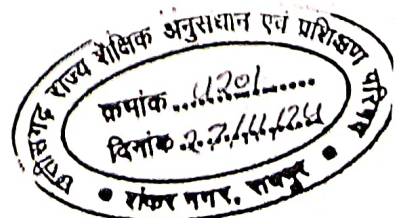 छत्तीसगढ़ राज्य शैक्षिक अनुसंधान एवं प्रशिक्षण परिषद
क्रमांक ..4201......
दिनांक .27/11/24
• शंकर नगर, रायपुर •